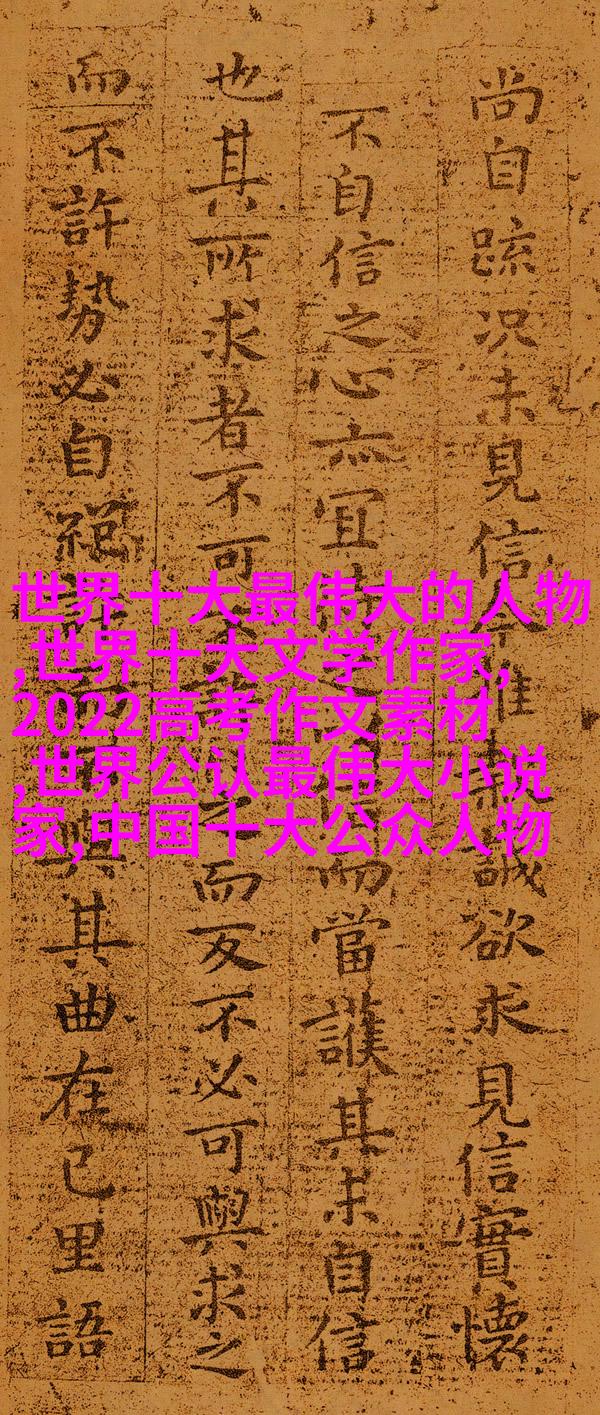 尚自疏况未見信今推誠欲求見信實懷
不自信之心亦宜而當護其未自信
也其所求者不可之而反不必可與求之
而不許勢必自絕與其曲在己里語
世界十大最伟大的人物
,世界十大文学作家,
2022高考作文素材
,世界公认最伟大小说
家,中国十大公众人物